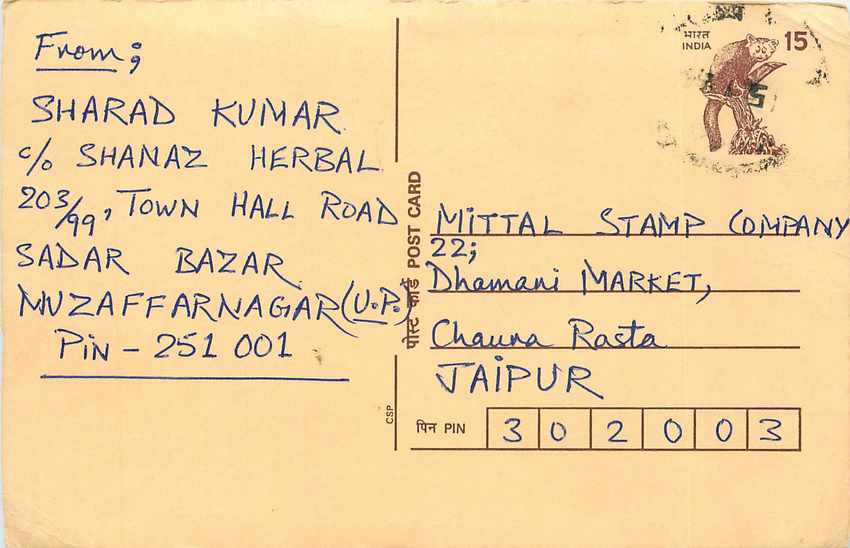 From;
SHARAD KUMAR
c/o SHANAZ HERBAL
203/99, TOWN HALL ROAD
SADAR BAZAR
MUZAFFARNAGAR (U.P.)
PIN - 251 001
पोस्ट कार्ड POST CARD
CSP
भारत
INDIA
15
MITTAL STAMP COMPANY
22;
Dhamani MARKET,
Chaura Rasta
JAIPUR
पिन PIN 302003